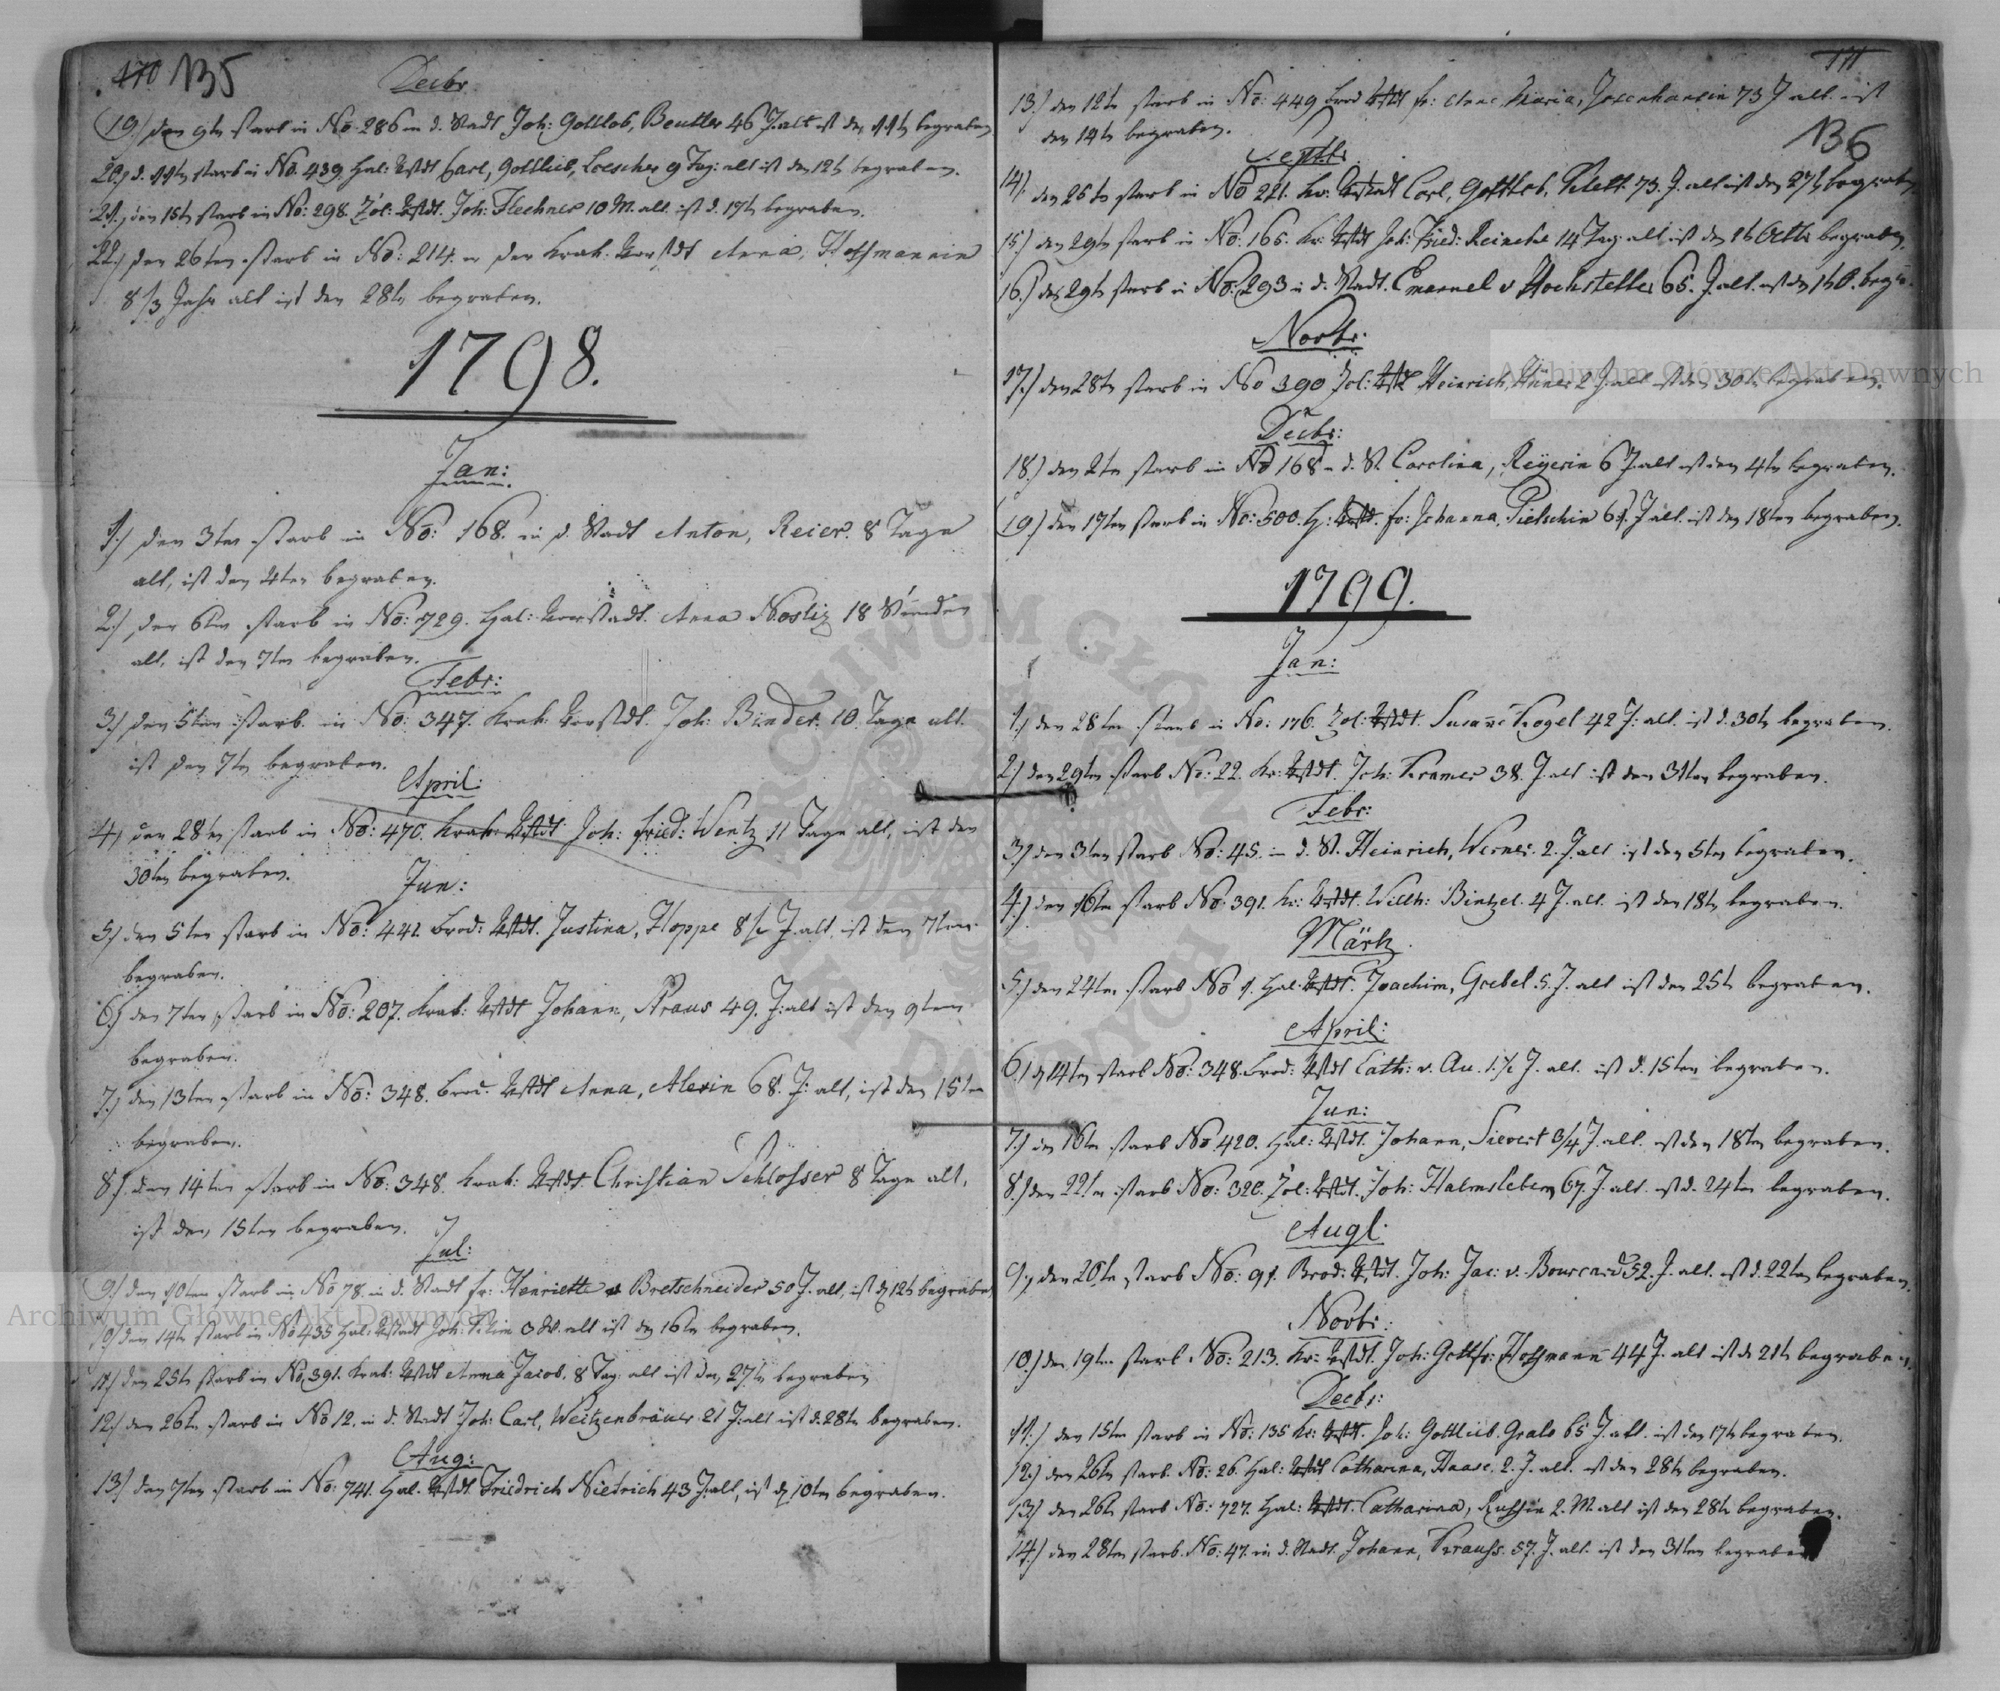 170 135
Decbr
19.) den 9tn starb in No: 286 in d. Stadt Joh: Gottlob, Beutler 46 J. alt ist den 11tn begraben
20.) d. 11tn starb in No. 439. Hal: Vstdt Carl, Gottlieb, Loescher 9 Tag: alt ist den 12tn begraben.
21., den 15tn starb in No: 298. Zol: Vstdt. Joh: Flechner 10 M. alt ist d. 17tn begraben.
22.) den 26ten starb in No: 214. in der Krak: Vorstdt Anna, Hoffmannin
8 1/3 Jahr alt ist den 28tn begraben.
1798.
Jan:
1.) den 3ten starb in No: 168. in d. Stadt Anton, Reier. 8 Tage
alt, ist den 4ten begraben.
2.) den 6tn starb in No: 729. Hal: Vorstadt. Anna Nostiz 18 Stunden
alt, ist den 7ten begraben.
Febr:
3.) den 5ten starb in No: 347. Krak: Vorstdt. Joh: Binder. 10. Tage alt.
ist den 7tn begraben.
April:
4.) den 28tn starb in No: 470. Krak: Vstdt Joh: Fried: Wentz 11 Tage alt, ist den
30ten begraben.
Jun:
5.) den 5ten starb in No: 442 Brod: Vstdt. Justina, Hoppe 8 1/2 J. alt, ist den 7ten
begraben.
6.) den 7ten starb in No: 207. Krak: Vstdt Johann, Kraus 49. J: alt ist den 9ten
begraben.
7.) den 13ten starb in No: 348. Brod. Vstdt Anna, Alexin 68. J: alt, ist den 15ten
begraben.
8.) den 14ten starb in No: 348. Krak: Vstdt Christian Schlosser 8 Tage alt,
ist den 15ten begraben.
Jul:
9.) den 10ten starb in No 78. in d. Stadt fr: Henriette v Bretschneider 50 J. alt, ist d 12tn begraben
10) den 14tn starb in No 435 Hal: Vstadt Joh: 3 W. alt ist den 16tn begraben.
11.) den 25tn starb in No. 391. Krak: Vstdt Anna Jacob. 8 Tag: alt ist den 27tn begraben
12.) den 26tn starb in No 12. in d. Stadt Joh: Carl, Weitzenbräuer 21 J. alt ist d. 28tn begraben.
Aug:
13) den 7ten starb in No: 741. Hal. Vstdt Friedrich Niedrich 43 J. alt, ist d 10tn begraben.
171
13.) den 12tn starb in No: 449 Brod Vstdt fr: Anne Maria, 73 J alt. ist
den 14tn begraben.
136
Septbr
14). den 25tn starb in No 221. Kr: Vstadt Carl, Gottlob, Klett. 73. J. alt ist den 27tn begraben
15.) den 29tn starb in No: 165. Kr: Vstdt Joh: Fried: Reinecke 14 Tag: alt ist den 1tn Octbr begraben.
16.) den 29tn starb in No: 293 in d. Stadt. Emanuel v Hochstetter 65. J. alt. ist d 1tn O. begr.
Novbr:
17.) den 28tn starb in No 390 Zol: Vstdt Heinrich, Hüner 2 J. alt ist den 30tn begraben.
Decbr:
18.) den 2tn starb in No 168 in d. St. Carolina, Reyerin 6 J. alt ist den 4tn begraben.
19.) den 17ten starb in No: 500. H: Vstdt. fr: Johanna, Pietschin 61. J alt. ist den 18ten begraben.
1799.
Jan:
1.) den 28ten starb in No: 176. Zol: Vstdt. Susann: Kogel 42 J: alt. ist d. 30tn begraben.
2.) den 29tn starb No: 22. Kr: Vstdt. Joh: Kramer 38. J. alt ist den 31ten begraben.
Febr:
3.) den 3ten starb No: 45. in d. St. Heinrich, Werner. 2. J. alt ist den 5ten begraben.
4.) den 16ten starb No: 391. Kr: Vstdt. Willh: Bintzel. 4 J. alt. ist den 18tn begraben.
Märtz.
5.) den 24ten starb No 1. Hal: Vstdt. Joachim, Grebel. 5. J. alt ist den 25tn begraben.
April:
6.) d 14ten starb No: 348. Brod: Vstdt Cath: v. Au. 1 1/2 J. alt. ist d. 15ten begraben.
Jun:
7.) den 16tn starb No 420. Hal: Vstdt. Johann, Sievert 3/4 J. alt. ist den 18ten begraben.
8.) den 22tn starb No: 320. Zol: Vstdt. Joh: Halmsleben 67. J. alt. ist d. 24ten begraben.
Augl:
9., den 20tn starb No: 91. Brod: Vstdt. Joh: Jac: v. Bourcard 52. J. alt. ist d. 22tn begraben.
Novbr:
10.) den 19ten starb No: 213. Kr: Vstdt. Joh: Gottfr: Hoffmann 44 J. alt ist d 21tn begraben.
Decbr:
11.) den 15ten starb in No: 135 Kr: Vstdt. Joh: Gottlieb Grale 65 J. alt. ist den 17tn begraben.
12.) den 26tn starb. No: 26. Hal: Vstdt Catharina, Haase. 2. J. alt. ist den 28tn begraben.
13.) den 26tn starb No: 727. Hal: Vstdt. Catharina, Russin 2. M. alt ist den 28tn begraben.
14.) den 28ten starb. No: 47. in d. Stadt. Johann, Krauss. 57. J. alt. ist den 31ten begraben
Archiwum Główne Akt Dawnych
Archiwum Główne Akt Dawnych
ARCHIWUM GŁÓWNE AKT DAWNYCH